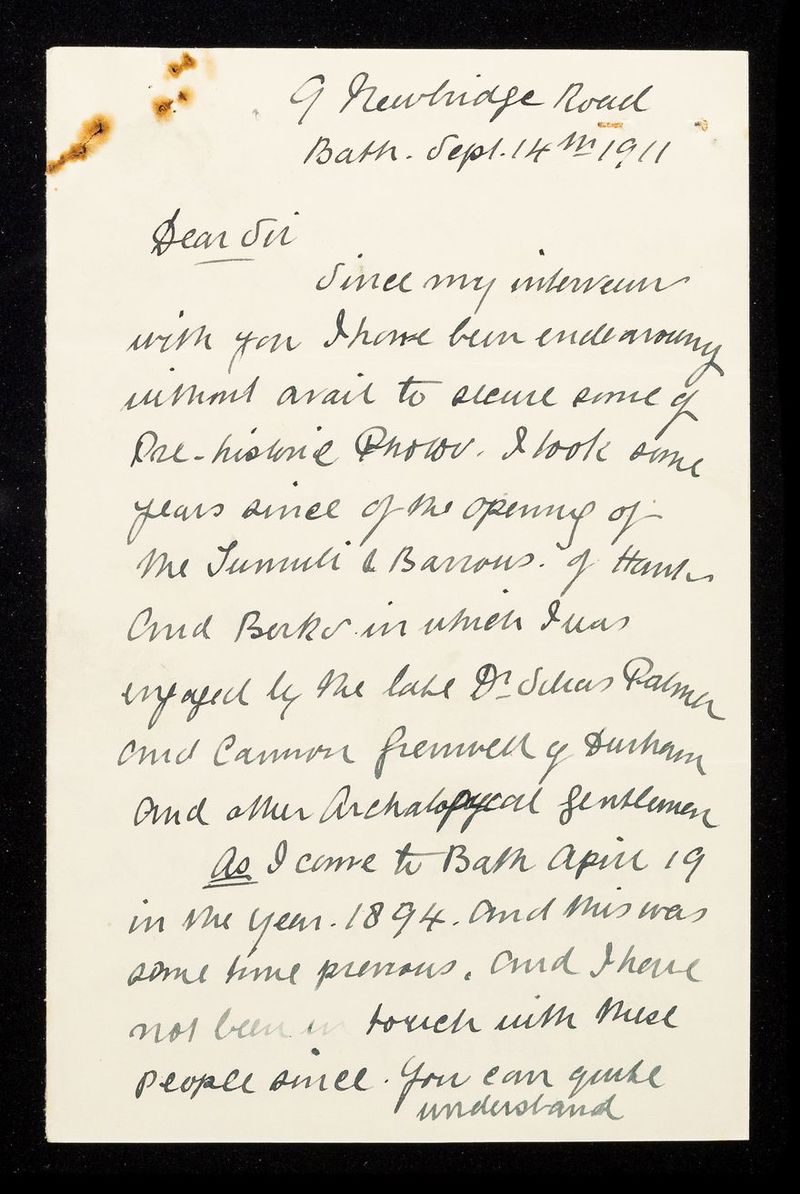 9 Newbridge Road
Bath. Sept. 14th 1911
Dear Sir
Since my interview
with you I have been endeavouring
without avail to secure some of
Pre-historic Photos. I took some
years since of the opening of
the Tumuli & Barrows. of Hants
and Berks in which I was
engaged by the late Dr Silvas Palmer
and Cannon Grenwell of Durham
and other Archalogycal gentlemen
As I came to Bath April 19
in the year. 1894. and this was
some time previous. and I have
not been in touch with these
People since. You can quite
understand